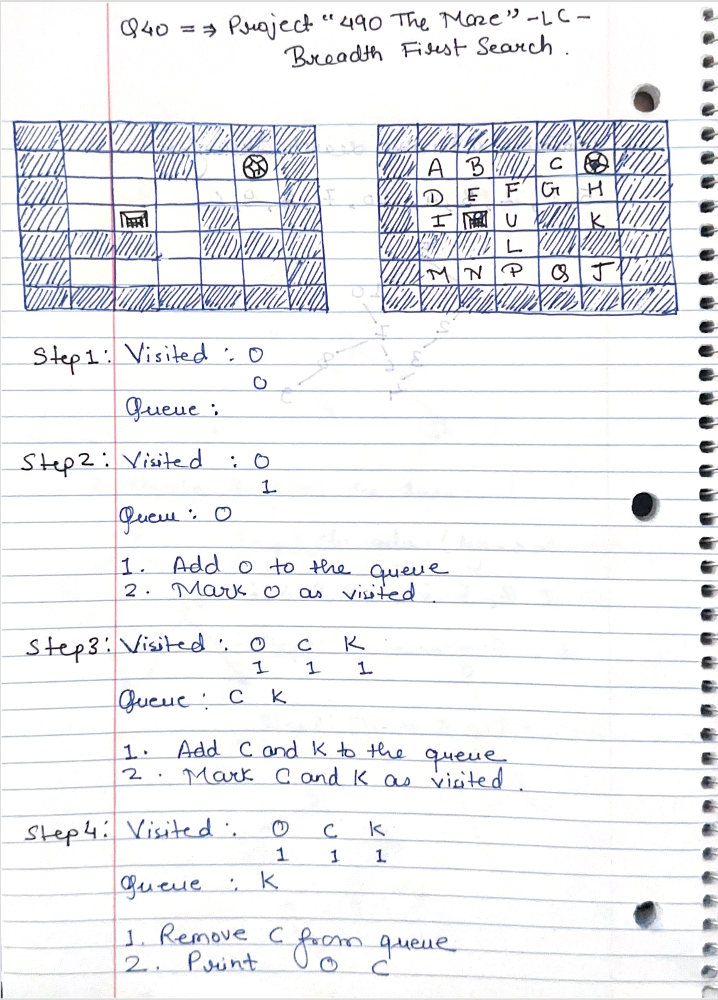 Q40 => Project "490 The Maze" - LC -
Breadth First Search.
A B C
D E F G H
I U K
L
M N P Q J
Step1: Visited : O
0
Queue :
Step2: Visited : O
1
Queue : O
1. Add O to the queue
2. Mark O as visited.
Step3: Visited : O C K
1 1 1
Queue : C K
1. Add C and K to the queue
2. Mark C and K as visited.
Step4: Visited : O C K
1 1 1
Queue : K
1. Remove C from queue
2. Print O C